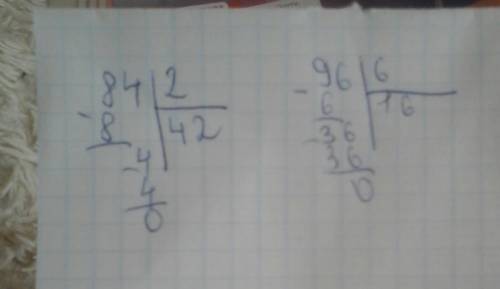 84 2
- 8 42
- 4
4
0
96 6
- 6 16
- 36
36
0